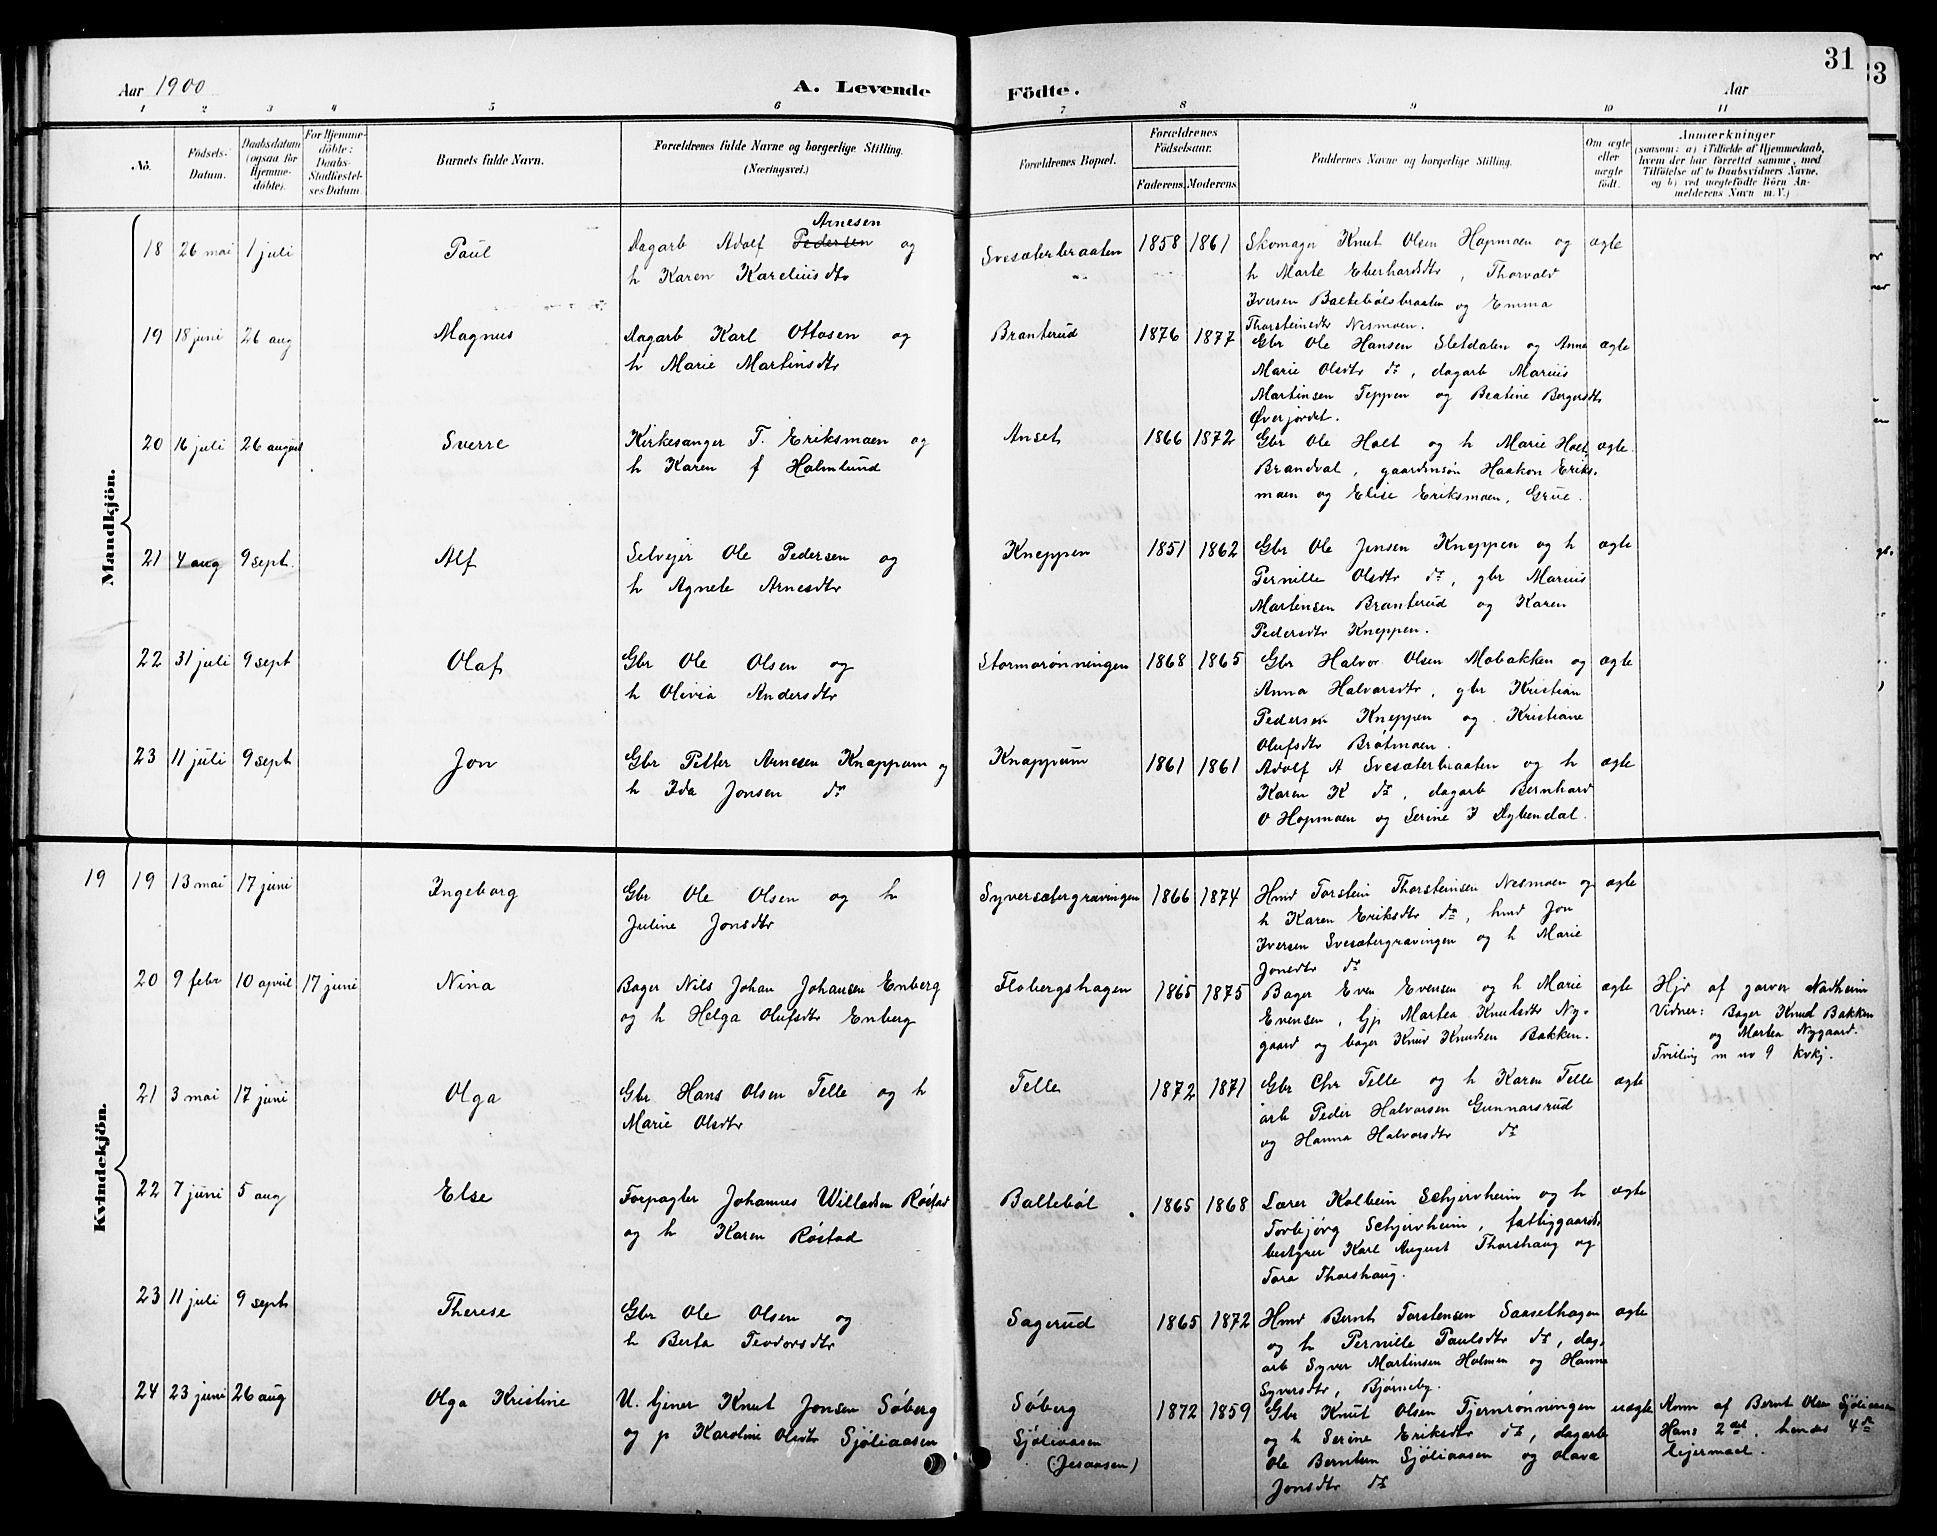 31
33
Aar 1900
A. Levende
Födte.
Aar
1 2 3 4 5 6 7 8 9 10 11
No.
Födsels-
Datum.
Daabsdatum
(ogsaa for
Hjemme-
döbte).
For Hjemme-
döbte:
Daabs-
Stadfæstel-
ses Datum.
Barnets fulde Navn.
Forældrenes fulde Navne og borgerlige Stilling.
(Næringsvei.)
Forældrenes Bopæl.
Forældrenes
Födselsaar.
Faderens. Moderens.
Faddernes Navne og borgerlige Stilling.
Om ægte
eller
uægte
födt.
Anmærkninger
(saasom: a) i Tilfælde af Hjemmedaab,
hvem der har forrettet samme, med
Tilföielse af to Daabsvidners Navne,
og b) ved uægtefödte Börn An-
melderens Navn m. V.)
Mandkjön.
18 26 mai 1 juli Paul
Arnesen
Dagarb Adolf Pedersen og
h Karen Kareliusdtr
Svesæterbraaten 1858 1861
Skomager Knut Olsen Hopmoen og
h Marte Eberhardsdtr, Thorvald
Iversen Baltebölsbraaten og Emma
Thorsteinsdtr Nesmoen.
ægte
19 18 juni 26 aug Magnus
Dagarb Karl Ottosen og
h Marie Martinsdtr
Branterud 1876 1877
Gbr Ole Hansen Sletdalen og Anna
Marie Olsdtr ds, dagarb Marius
Martinsen Teppen og Beatine Borgersdtr
Øverjordet.
ægte
20 16 juli 26 august Sverre
Kirkesanger T. Eriksmoen og
h Karen f Holmlund
Anset 1866 1872
Gbr Ole Holt og h Marie Holt,
Brandval, gaardmsön Haakon Eriks-
moen og Elise Eriksmoen, Grue.
ægte.
21 4 aug 9 sept. Alf
Selvejer Ole Pedersen og
h Agnete Arnesdtr
Kneppen 1851 1862
Gbr Ole Jensen Kneppen og h
Pernille Olsdtr ds, gbr Marius
Martinsen Branterud og Karen
Pedersdtr Kneppen.
ægte
22 31 juli 9 sept Olaf
Gbr Ole Olsen og
h Olivia Andersdtr
Stormorønningen 1868 1865
Gbr Halvor Olsen Mobakken og
Anna Halvorsdtr, gbr Kristian
Pedersen Kneppen og Kristiane
Olufsdtr Brøtmoen.
ægte
23 11 juli 9 sept Jon
Gbr Petter Arnesen Knappum og
h Ida Jonsen ds
Knappum 1861 1861
Adolf A Svesæterbraaten og h
Karen K ds, dagarb Bernhard
O Hopmoen og Serine I Dybendal.
ægte
Kvindekjön.
19 19 13 mai 17 juni Ingeborg
Gbr Ole Olsen og h
Juline Jonsdtr
Syversætergravingen 1866 1874
Hmd Torstein Thorsteinsen Nesmoen og
h Karen Eriksdtr ds, hmd Jon
Iversen Svesætergravingen og h Marie
Jonsdtr ds
ægte
20 9 febr 10 april 17 juni Nina
Bager Nils Johan Johansen Enberg
og h Helga Olufsdtr Enberg
Flobergshagen 1865 1875
Bager Even Evensen og h Marie
Evensen, Gp Martea Knutsdtr Ny-
gaard og bager Knud Knudsen Bakken.
ægte
Hjd af garver Nordheim
Vidner: Bager Knud Bakken
og Martea Nygaard.
Tvilling m no 9 kvkj.
21 3 mai 17 juni Olga
Gbr Hans Olsen Telle og h
Marie Olsdtr
Telle 1872 1871
Gbr Chr Telle og h Karen Telle
arb Peder Halvorsen Gunnarsrud
og Hanna Halvorsdtr ds
ægte
22 7 juni 5 aug Else
Forpagter Johannes Willadsen Röstad
og h Karen Röstad
Balteböl 1865 1868
Lærer Kolbein Schjervheim og h
Torbjørg Schjervheim, fattiggaards-
bestyrer Karl August Thorshaug og
Tora Thorshaug.
ægte
23 11 juli 9 sept Therese
Gbr Ole Olsen og
h Berta Teodorsdtr
Sagerud 1865 1872
Hmd Bernt Torstensen Saaselhagen
og h Pernille Paulsdtr ds, dag-
arb Syver Martinsen Holmen og Hanna
Syversdtr, Bjørneby.
ægte
24 23 juni 26 aug Olga Kristine
U. tjener Knut Jonsen Söberg
og p Karoline Olsdtr Sjöliaasen
Söberg
Sjöliaasen
(Jesaasen)
1872 1859
Gbr Knut Olsen Tjernrønningen
og h Serine Eriksdtr ds, dagarb
Ole Berntsen Sjöliaasen og Olava
Jonsdtr ds
uægte
Anm af Bernt Olsen Sjöliaasen
Hans 2det, hendes 4de
lejermaal.